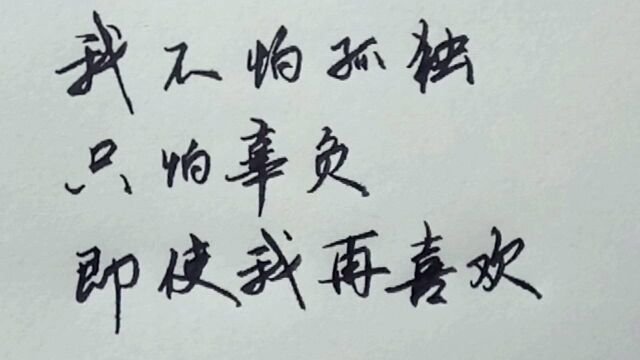 我不怕孤独
只怕辜负
即使我再喜欢